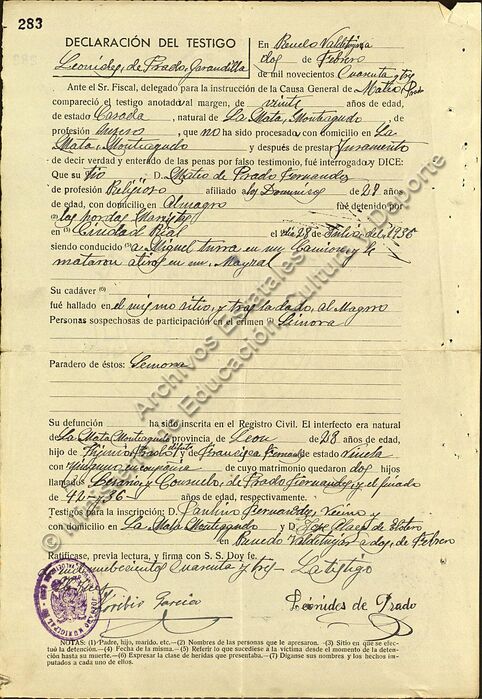 283
DECLARACIÓN DEL TESTIGO
Leonides, de Prado, Garandilla
En Renedo Valdetuejar
dos de Febrero
de mil novecientos Cuarenta y tres
Ante el Sr. Fiscal, delegado para la instrucción de la Causa General de Mateo Prado
compareció el testigo anotado al margen, de veinte años de edad,
de estado Casada, natural de La Mata, Monteagudo, de
profesión que no ha sido procesada, con domicilio en La
Mata, Monteagudo y después de prestar Juramento
de decir verdad y enterado de las penas por falso testimonio, fué interrogado y DICE:
Que su tio D. Mateo de Prado Fernandez
de profesión Religioso afiliado de 27 años
de edad, con domicilio en Almagro fué detenido por
(2) las hordas Marxistas
en (3) Ciudad Real el día 28 de Julio del 1936
siendo conducido (5) a Miguel turra en un Camion y le
mataron a tiros en un
Su cadáver (6)
fué hallado en el mismo sitio, y trasladado, al Magro
Personas sospechosas de participación en el crimen (7)
Paradero de éstos:
Su defunción ha sido inscrita en el Registro Civil. El interfecto era natural
de La Mata Monteagudo provincia de Leon de 28 años de edad,
hijo de y de Francisca Fernandez de estado
con de cuyo matrimonio quedaron dos hijos
llamados Cesareo y Consuelo, de Prado Fernandez, y el finado
de 42-36- años de edad, respectivamente.
Testigos para la inscripción: D. Paulino Fernandez, Vecino y
con domicilio en La Mata Monteagudo y D. Jose
en Renedo Valdetuejar a dos, de Febrero
Ratifícase, previa lectura, y firma con S. S. Doy fe.
Cuarenta y tres La testigo
Toribio Garcia
Leónides de Prado
NOTAS: (1) Padre, hijo, marido, etc.—(2) Nombres de las personas que le apresaron.—(3) Sitio en que se efectuó la detención.—(4) Fecha de la misma.—(5) Referir lo que sucediese a la víctima desde el momento de la detención hasta su muerte.—(6) Expresar la clase de heridas que presentaba.—(7) Díganse sus nombres y los hechos imputados a cada uno de ellos.
© Ministerio de Educación, Cultura y Deporte
Archivos Estatales